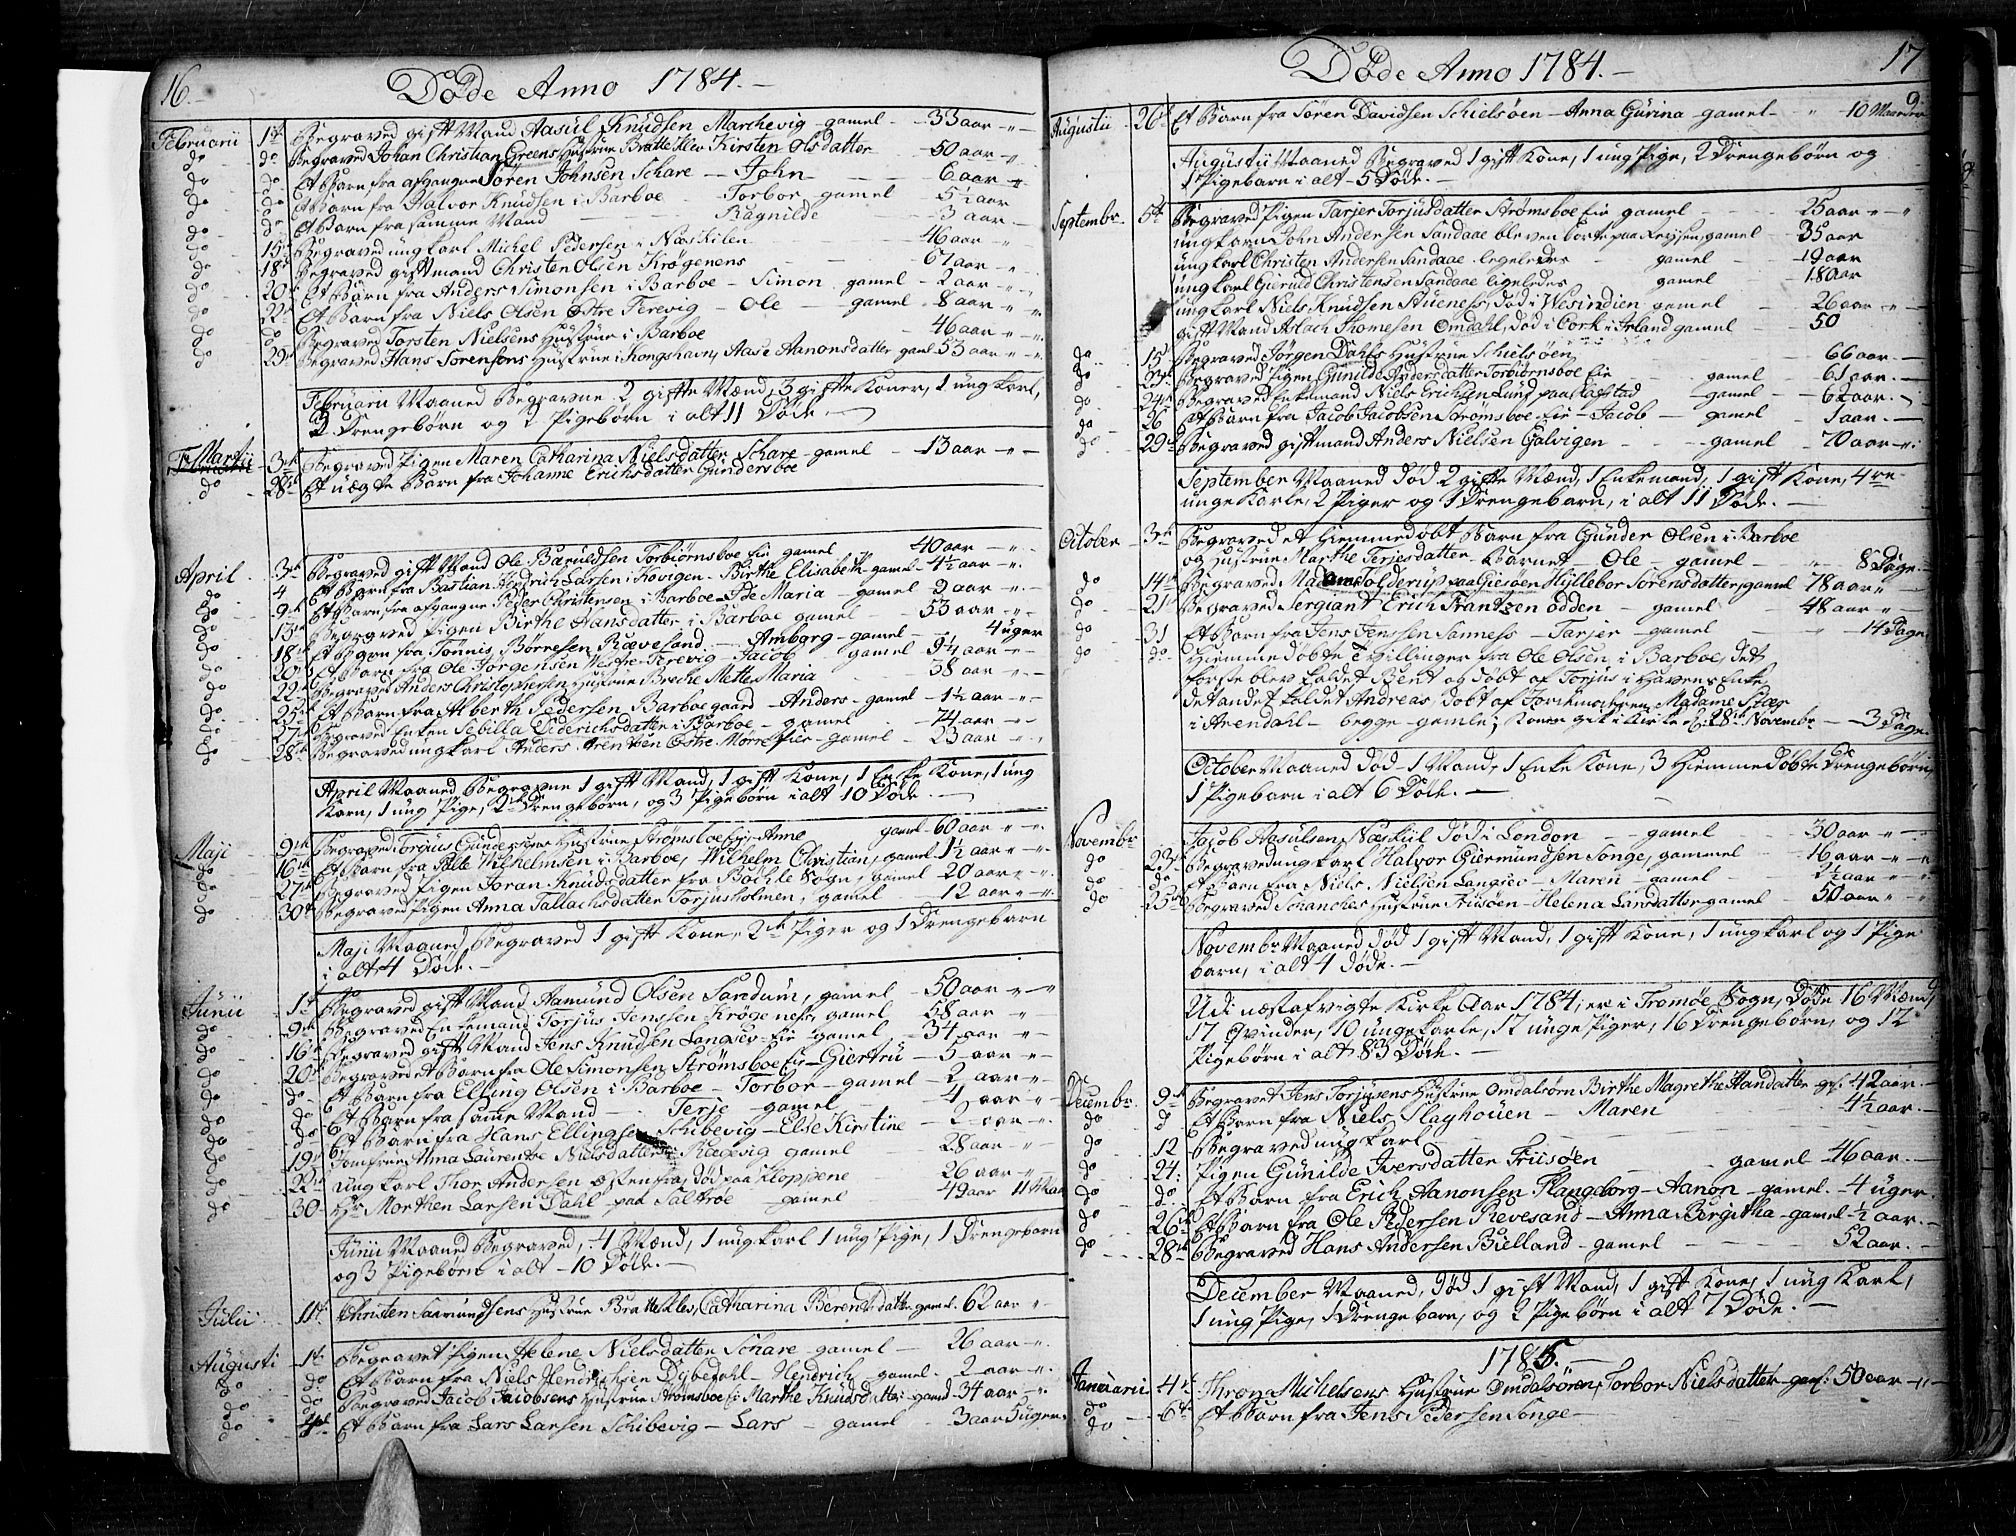 16.
Døde Anno 1784.
Februarii 1te Begraved gift Mand Aasul Knudsen Marchevig gamel 33 aar
do do Begraved Johan Christian Greens Hustrue Bratteklev Kirsten Olsdatter 50 aar
do do Et Barn fra afgangne Søren Johnsen Schare John 6 aar
do do Et Barn fra Halvor Knudsen i Barboe Torbor gamel 5½ aar
do do Et Barn fra samme Mand Ragnilde 3 aar
do 15 Begraved ungkarl Michel Pedersen i Næskilen 46 aar
do 18 Begraved giftmand Christen Olsen Krøgenens 67 aar
do 20 Et Barn fra Anders Simonsen i Barboe Simon gamel 2 aar
do 22 Et Barn fra Niels Olsen Østre Ferevig Ole gamel 8 aar
do do Begraved Torsten Nielsens Hustrue i Barboe 46 aar
do 29 Begraved Hans Sørensøns Hustrue i Kongshavn, Aase Aanonsdatter gamel 53 aar
Februarii Maaned Begravne 2 gifte Mænd, 3 gifte Koner, 1 ung karl,
3 Drengebørn og 2 Pigebørn i alt 11 Døde.
Martii 3de Begraved Pigen Maren Catharina Nielsdatter Schare gamel 13 aar
do 28 Et uægte Barn fra Johanne Erichsdatter Gundersboe
April 3de Begraved gift Mand Ole Baruldsen Torbiørnsboe Eie gamel 40 aar
do 4 Et Barn fra Bastian Hendrich Larsen i Kovigen Birthe Elisabeth gamel 4½ aar
do 9de Et Barn fra afgangne Peder Christensen i Barboe Ide Maria gamel 2 aar
do 13de Begraved Pigen Birthe Hansdatter i Barboe gamel 53 aar
do 18 Et Barn fra Tønnis Børresen Rævesand Amborg gamel 4 uger
do 20 Et Barn fra Ole Jørgensen Westre Ferevig Jacob gamel 9¼ aar
do 22 Begravet Anders Christophersen Hustrue Breche Mette Maria 38 aar
do 25 Et Barn fra Alberth Pedersen Barboegaard Anders gamel 1½ aar
do 27 Begraved Enken Sebilla Diderichsdatter i Barboe gamel 74 aar
do 28 Begraved ungkarl Anders Arentsen Østre Mørrefier gamel 23 aar
April Maaned Begravne 1 gift Mand, 1 gift Kone, 1 Enke Kone, 1 ung
Karn, 1 ung Pige, 2 Drengebørn, og 3 Pigebørn i alt 10 Døde.
Maji 9de Begraved Torgius Gundersens Hustrue Strømsboe Eie, Anne gamel 60 aar
do 16 Et Barn fra Palle Wilhelmsen i Barboe, Wilhelm Christian, gamel 1½ aar
do 27 Begraved Pigen Joran Knudsdatter fra Bochle Sogn, gamel 20 aar
do 30 Begraved Pigen Anna Tallachsdatter Torjusholmen, gamel 12 aar
Maji Maaned Begraved 1 gift Kone, 2 Piger og 1 Drengebarn
i alt 4 Døde.
Junii 1te Begraved gift Mand Aamund Olsen Sandum, gamel 50 aar
do 9de Begraved Enkemand Torjus Jenssen Krøgenes, gamel 58 aar
do 16 Begraved gift Mand Jens Knudsen Langsev Eie gamel 34 aar
do 20 Begraved et Barn fra Ole Simonsen Strømsboe Eie Giertru 5 aar
do do Et Barn fra Elling Olsen i Barboe Torbor gamel 2 aar
do do Et Barn fra samme Mand Terje gamel 4 aar
do do Et Barn fra Hans Ellingsen Schibevig Else Kirstine 2 aar
do 19 Jomfrue Anna Laurentze Nielsdatter Rægevig gamel 28 aar
do 22 ung karl Thor Andersen østenfra, død paa Kloppene 26 aar
do 30 Hr Morthen Larsen Dahl paa Saltrøe gamel 49 aar 11 Maa
Junii Maaned Begraved, 4 Mænd, 1 ungkarl 1 ung Pige, 1 Drengebarn
og 3 Pigebørn i alt 10 Døde.
Julii 11te Christen Saamundsens Hustrue Bratteklev, Catharina Berentsdatter gamel 62 aar
Augusti 1te Begravet Pigen Helene Nielsdatter Schare gamel 26 aar
do do Et Barn fra Niels Hendrichsen Dybedahl Hendrich gamel 2 aar
do do Begraved Jacob Jacobsens Hustrue Strømsboe Eie Marthe Knudsdatter gamel 34 aar
do 4de Et Barn fra Lars Larsen Schibevig Lars gamel 3 aar 5 uger
17
9.
Døde Anno 1784.
Augustii 26de Et Barn fra Søren Davidsen Schielsøen Anna Gurina gamel 10 Maaneder
Augustii Maaned Begraved 1 gift Kone, 1 ung Pige, 2 Drengebørn og
1 Pigebarn i alt 5 Døde.
Septembr. 5te Begraved Pigen Tarjer Torjusdatter Strømsboe Eie gamel 25 aar
ungkarn John Andersen Sandaae bleven borte paa Reijsen gamel 35 aar
ungkarl Christen Andersen Sandaae ligeledes gamel 19 aar
ungkarl Gieruld Christensen Sandaae ligeledes gamel 18 aar
ungkarl Niels Knudsen Stueness, død i Westindien gamel 26 aar
gift Mand Aslach Thomesen Omdahl, død i Cork i Irland gamel 50
do 15 Begraved Jørgen Dahls Hustrue Schielsøen 66 aar
do 23 Begraved Pigen Gunilde Andersdatter Torbiørnsboe Eie gamel 61 aar
do 24 Begraved Enkemand Niels Erichsen Lund paa Rogstad gamel 62 aar
do 26 Et Barn fra Jacob Jacobsen Strømsboe Eie Jacob gamel 1 aar
do 29 Begraved giftmand Anders Nielsen Galvigen gamel 70 aar
September Maaned Død 2 gifte Mænd, 1 Enkemand, 1 gift Kone, 4re
unge Karle, 2 Piger og 1 Drengebarn, i alt 11 Døde.
October 3de Begraved et Hiemmedøbt Barn fra Gunder Olsen i Barboe
og Hustrue Marthe Terjesdatter Barnet Ole gamel 8 Dage
do 14 Begraved Madame Tolderup paa Giesøen Hyllebor Sørensdatter gamel 78 aar
do 21 Begraved Sergiant Erich Frantzen Odden gamel 48 aar
do 31 Et Barn fra Jens Jenssen Sanness Tarjer gamel 14 Dage
do do Hiemme døbte Tvillinger fra Ole Olsen i Barboe, det
første blev kaldet Bent og døbt af Torjus i Havens Enke
det andet kaldet Andreas, døbt af Jordemoderen Madame
i Arendahl begge gamle, Konen gik i Kirke d: 28 Novembr 3 Dage
October Maaned død 1 Mand, 1 Enke Kone, 3 Hiemmedøbte Drengebørn,
1 Pigebarn i alt 6 Døde.
Novembr. Jacob Aasulsen, Næskiil død i London gamel 30 aar
do 23 Begraved ungkarl Halvor Giermundsen Songe, gammel 16 aar
do do Et Barn fra Niels Nielsen Langsev Maren gamel 2½ aar
do 25 Begraved Schanches Hustrue Friisøen Helena Larsdatter gamel 50 aar
Novembr. Maaned død 1 gift Mand, 1 gift Kone, 1 ungkarl og 1 Pige
barn, i alt 4 døde.
Udi næst afvigte Kirke Aar 1784, er i Tromøe Sogn, Døde 16 Mænd,
17 Qvinder, 10 unge karle, 12 unge Piger, 16 Drengebørn, og 12
Pigebørn i alt 83 Døde.
Decembr. 9de Begravet Jens Torjusens Hustrue Omdalsøren Birthe Magrethe Handatter gl. 42 aar
do d Et Barn fra Niels Slaghouen Maren 4½ aar
do 12 Begraved ungkarl
do 24. Pigen Gunilde Iversdatter Friisøen gamel 46 aar
do do Et Barn fra Erich Aanonsen Plangeborg Aanon gamel 4 uger
do 26 Et Barn fra Ole Pedersen Revesand Anna Bergitha gamel ½ aar
do 28 Begraved Hans Andersen Bielland gamel 52 aar
December Maaned, død 1 gift Mand, 1 gift Kone, 1 ung Karl,
1 ung Pige, 1 Drengebarn, og 2 Pigebørn i alt 7 Døde.
1785.
Januarii 4de Thron Michelsens Hustrue Omdalsøren, Torbor Nielsdatter gaml. 50 aar
do 6te Et Barn fra Jens Pedersen Songe
do